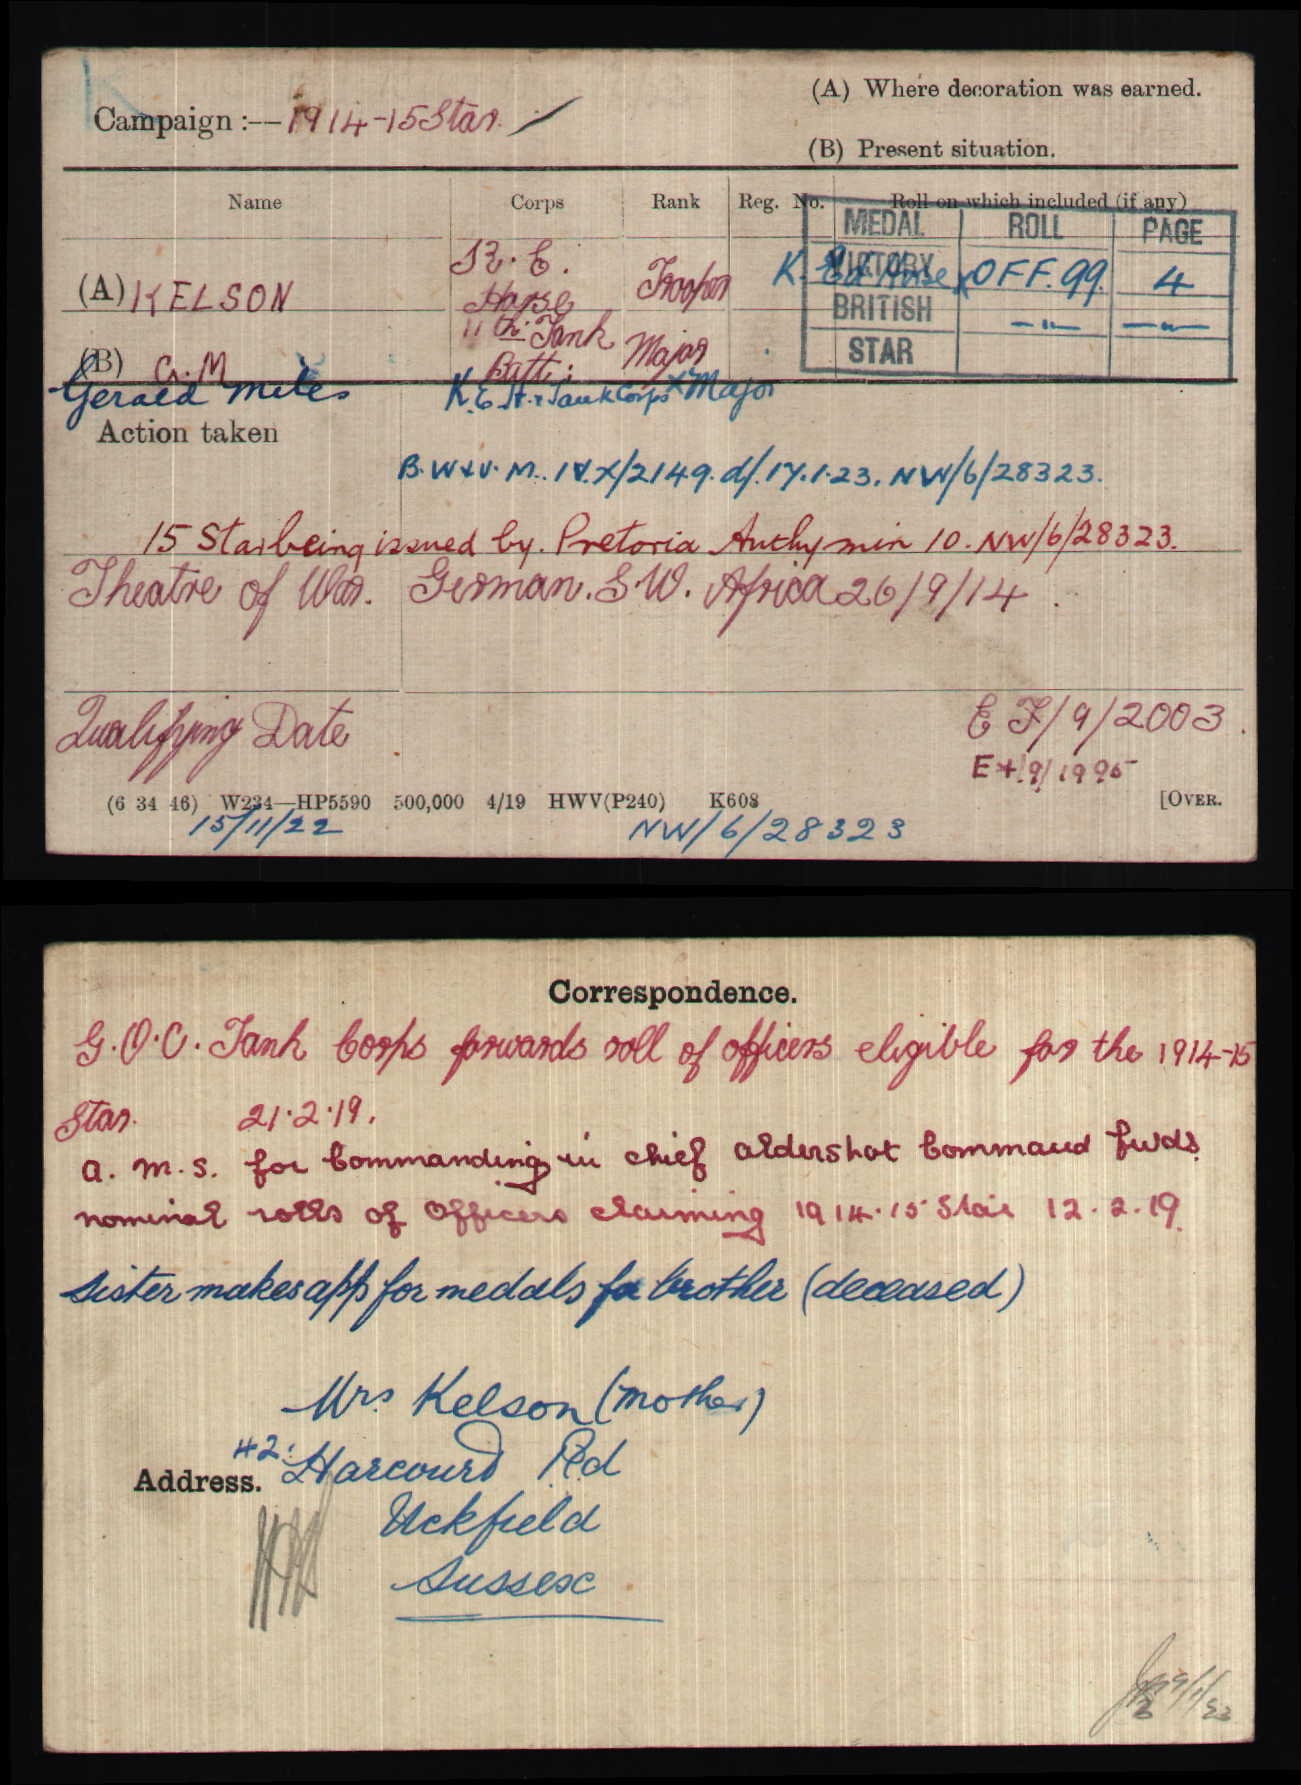 Campaign :— 1914-15 Star.
(A) Where decoration was earned.
(B) Present situation.
Name Corps Rank Reg. No. Roll on which included (if any)
MEDAL ROLL PAGE
VICTORY OFF. 99. 4
BRITISH — " — — " —
STAR
(A) KELSON Horse Trooper
(B) G. M 11th Tank Batt: Major
Gerald Miles K. E. H. & Tank Corps × Major
Action taken
B. W & V. M. IV. X/2149. d/. 17.1.23. NW/6/28323.
15 Star being issued by. Pretoria Authy min 10. NW/6/28323.
Theatre of War. German. S W. Africa 26/9/14.
Qualifying Date
E F/9/2003.
E + /9/1995
(6 34 46) W234—HP5590 500,000 4/19 HWV(P240) K608 [OVER.
15/11/22 NW/6/28323
Correspondence.
G.O.C. Tank Corps forwards roll of officers eligible for the 1914-15
Star. 21.2.19.
A. M. S. for Commanding in chief Aldershot Command fwds
nominal rolls of Officers claiming 1914.15 Star 12.2.19.
Sister makes app for medals for brother (deceased)
Mrs Kelson (mother)
Address. 42: Harcourt Rd
Uckfield
Sussex